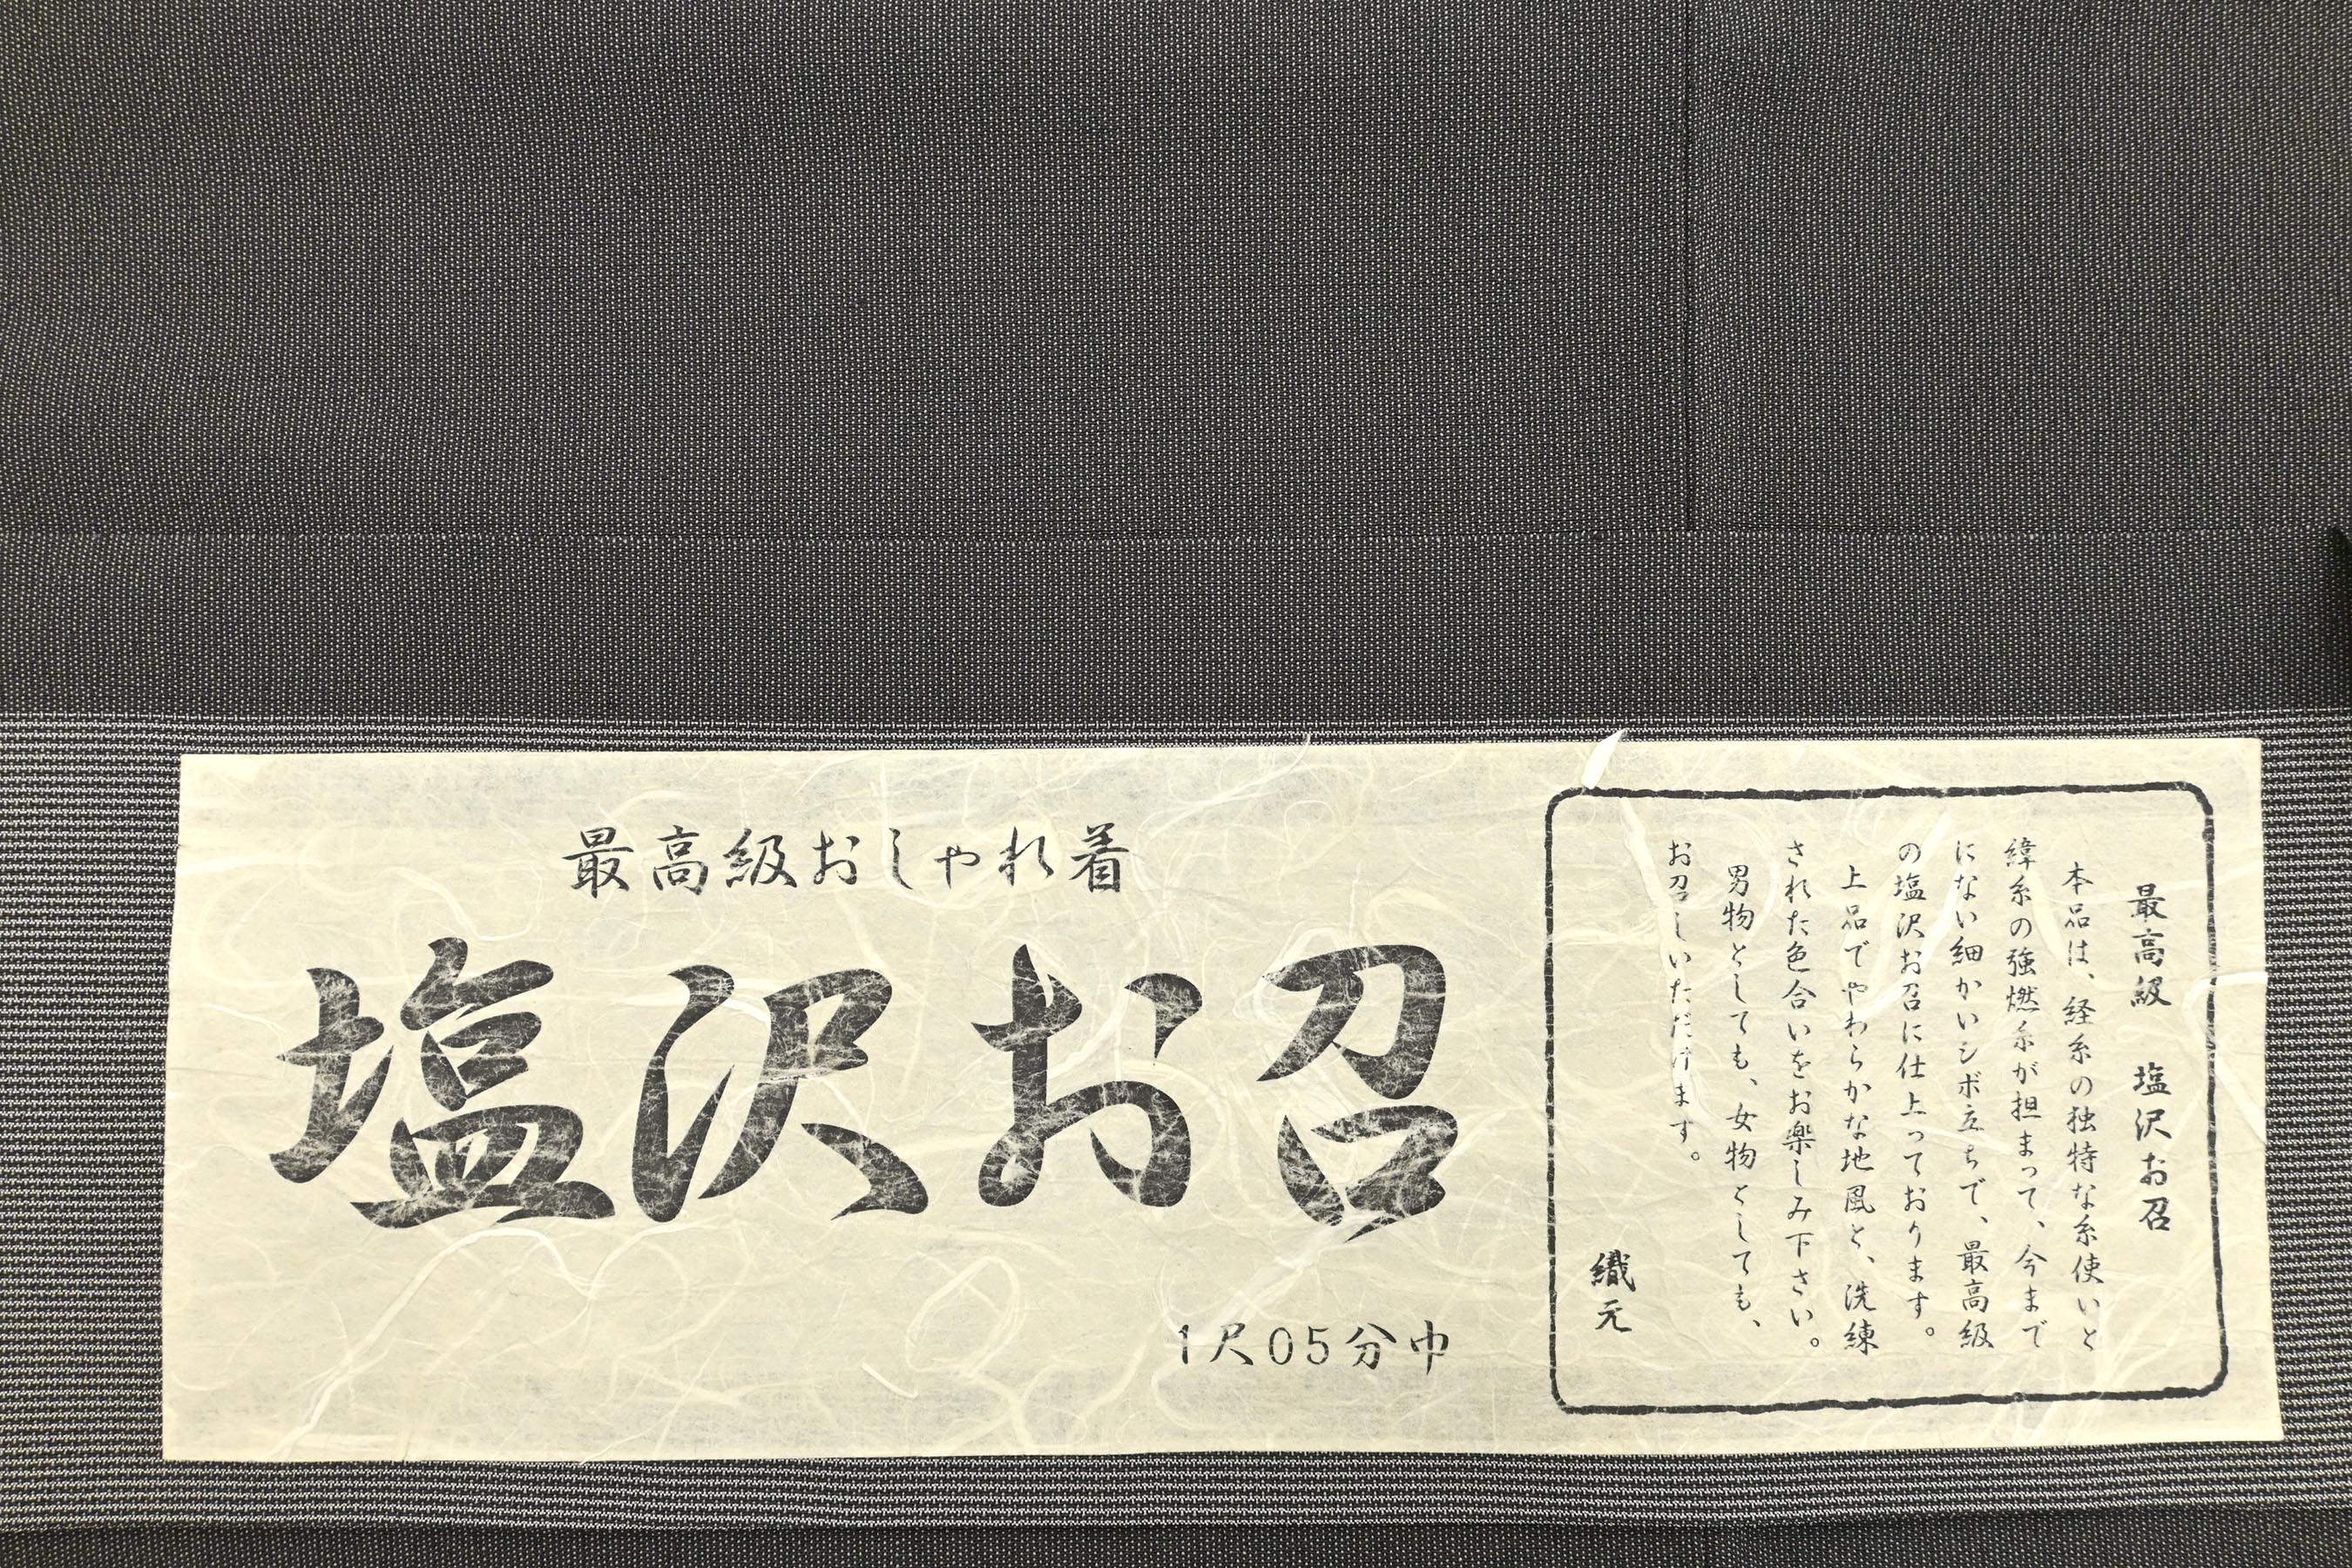 最高級おしゃれ着
塩沢お召
1尺05分巾
最高級 塩沢お召
本品は、経糸の独特な糸使いと
緯糸の強燃糸が担まって、今まで
にない細かいシボ立ちで、最高級
の塩沢お召に仕上っております。
上品でやわらかな地風と、洗練
された色合いをお楽しみ下さい。
男物としても、女物としても、
お召しいただけます。
織元